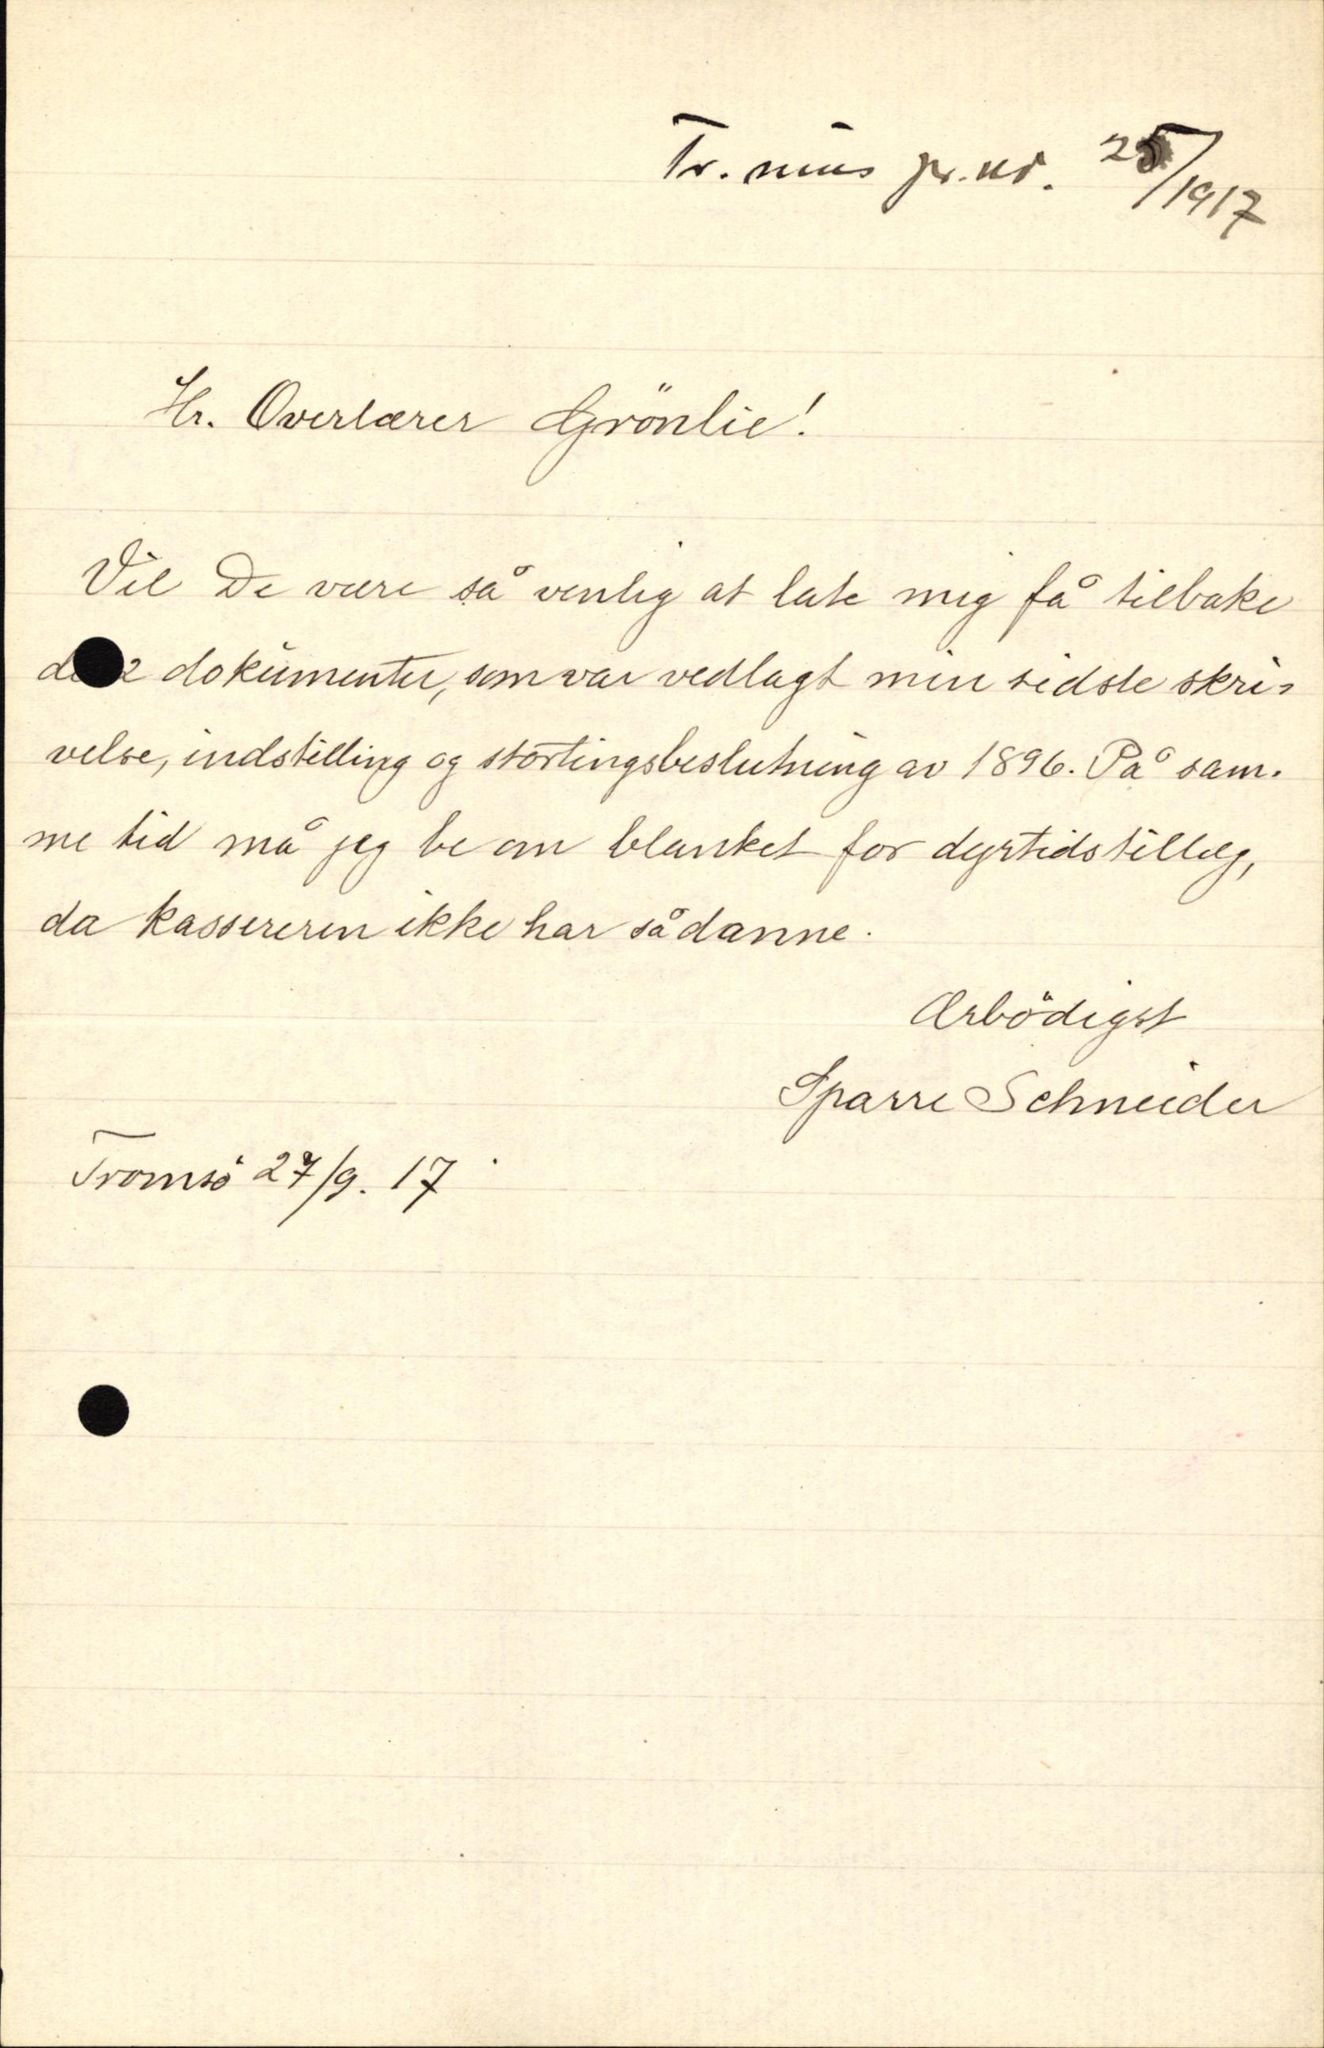 Tr. mus jr. nr. 25/1917
Hr. Overlærer Grönlie!
Vil De være så venlig at late mig få tilbake
de 2 dokumenter, som var vedlagt min sidste skri-
velse, indstilling og stortingsbeslutning av 1896. På sam-
me tid må jeg be om blanket for dyrtidstillæg,
da kassereren ikke har sådanne.
Ærbödigst
Sparre Schneider
Tromsö 27/9. 17